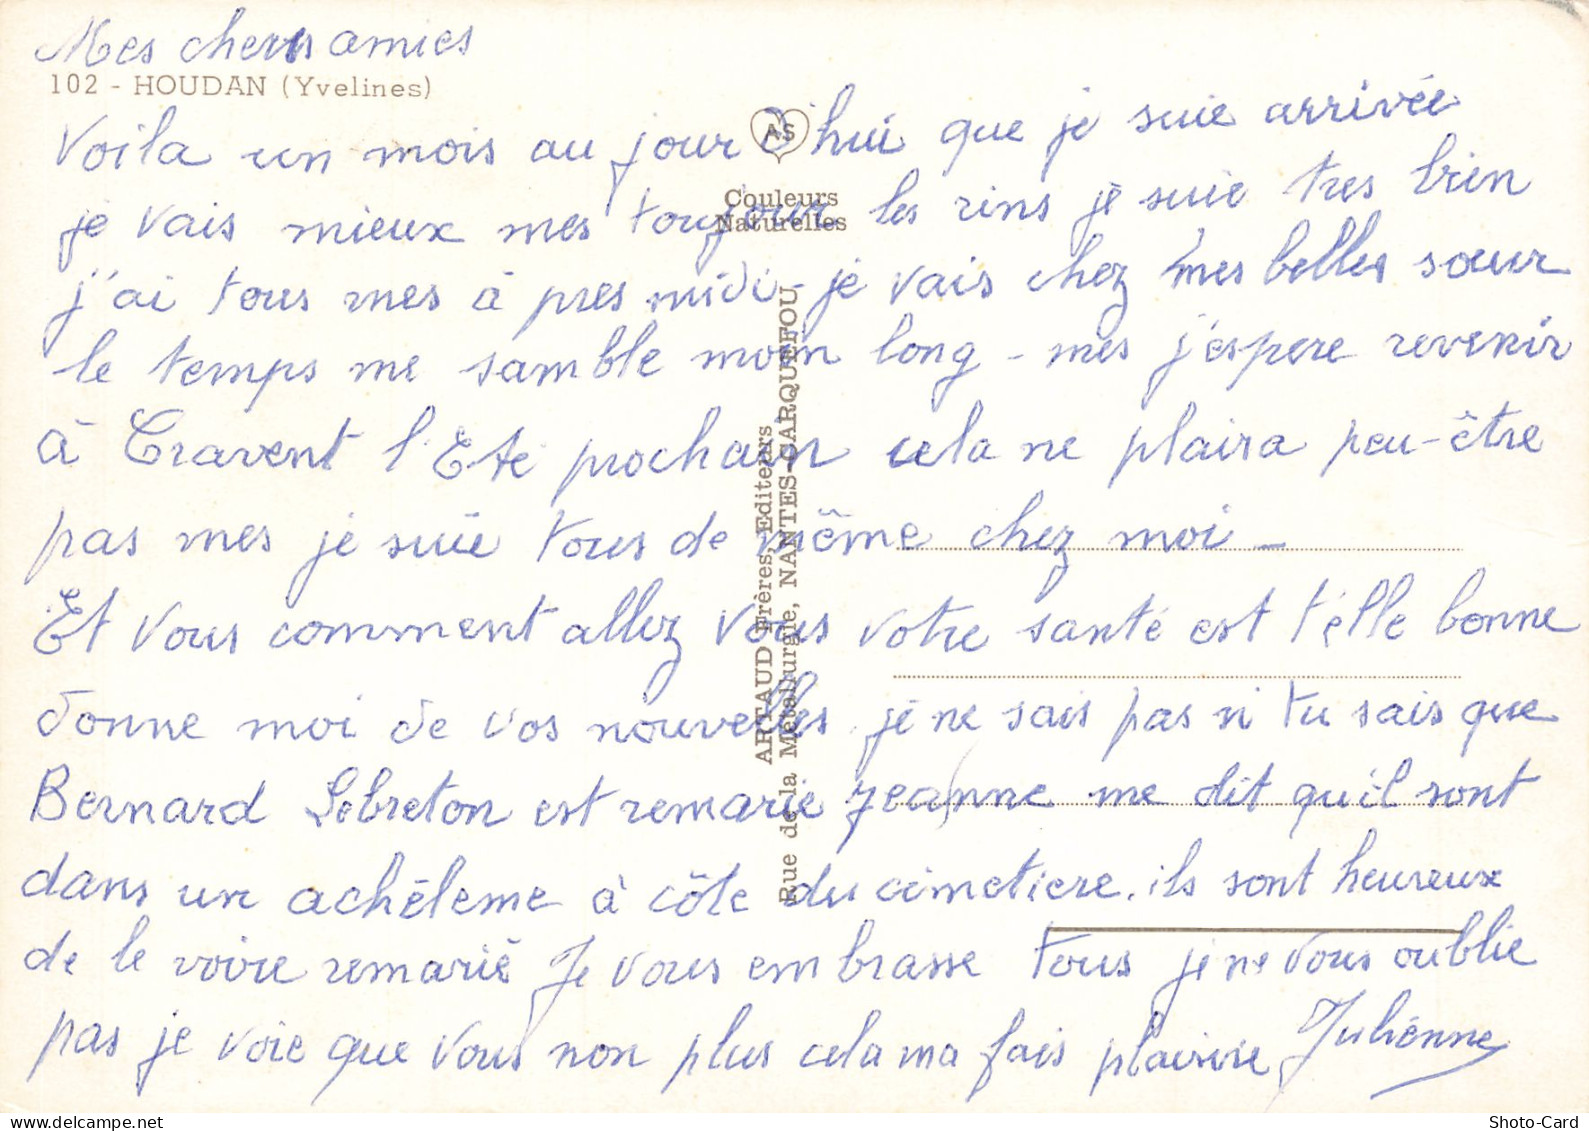 Mes chers amies
102 - HOUDAN (Yvelines)
Voila un mois au jour d'hui que je suie arrivée
AS
Couleurs
Naturelles
je vais mieux mes toujour les rins je suie tres bien
j'ai tous mes à pres midi - je vais chez mes belles sœur
le temps me samble moin long - mes j'espere revenir
à Cravent l'Eté prochain cela ne plaira peu-être
pas mes je suie tous de même chez moi -
Et vous comment allez vous votre santé est t'elle bonne
donne moi de vos nouvelles je ne sais pas si tu sais que
Bernard Lebreton est remarie jeanne me dit qu'il sont
dans un achéleme à côte du cimetiere. ils sont heureux
de le voire remarié Je vous embrasse tous je ne vous oublie
pas je voie que vous non plus cela ma fais plaisire Juliénne
ARTAUD Frères, Editeurs
Rue de la Métallurgie, NANTES-CARQUEFOU
Shoto-Card